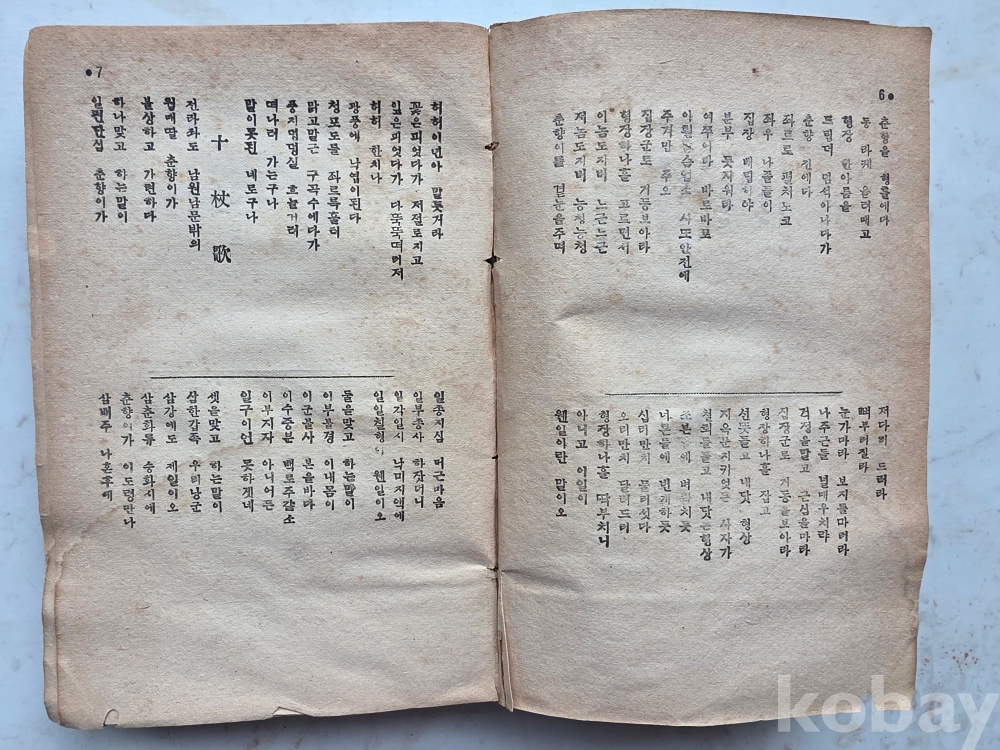 6●
춘향을 형틀에다
동 라케 올려매고
형장 한아름을
드립더 덤석아나다가
춘향 전에다
좌르르 펼치노코
좌우 나졸들이
집장 배립하야
분부 듯자위라
여쭈어라 바로바로
아뢸 슴업소 사또안전에
주겨만 주오
집장군도 거동보아라
형장하나흘 고르면서
이놈도지버 느근느근
저놈도지버 능청능청
춘향이를 겉눈을주며
저다리 드러라
뼈부러질라
눈가마라 보지를마러라
나주근들 널매우치랴
걱정을말고 근심을마라
집장군로 거동을보아라
형장하나흘 잡고
선뜻들고 내닷 형상
지옥문지키엿든 사자가
철퇴를들고 내닷는형상
조본 에 벼락치듯
나흔들에 번개하듯
십리만치 물러섯다
오리만치 달려드러
형장하나흘 딱부치니
아니고 이일이
웬일이란 말이오
●7
허허이년아 말듯거라
꽃은피엇다가 저절로지고
잎은피엿다가 다뚝뚝떠러저
허허 한치나
광풍에 낙엽이된다
청포도를 좌르륵훌터
맑고말근 구곡수에다가
풍지덤벙실 흐늘거려
떠나려 가는구나
말이못된 네로구나
十杖歌
전라좌도 남원남문밖의
월매딸 춘향이가
불상하고 가련하다
하나맞고 하는말이
일편단심 춘향이가
일종지심 머근마음
일부종사 하잣더니
일각일시 낙미지액에
일일칠형이 웬일이오
둘을맞고 하는말이
이부불경 이내몸이
이군불사 본을바다
이수중분 백로주갈소
이부지자 아니어든
일구이언 못하겟네
셋을맞고 하는말이
삼한갑족 우리낭군
삼강에도 제일이오
삼춘화류 승화시에
춘향이가 이도령만나
삼배주 나흔후에